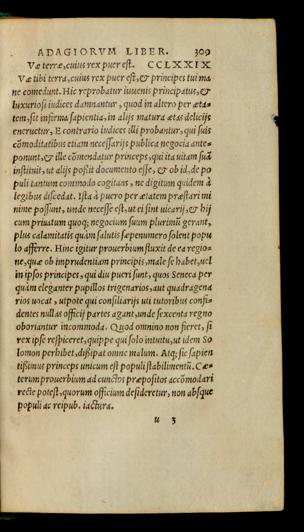 ADAGIORVM LIBER. 309
Væ terræ, cuius rex puer est. CCLXXIX
Væ tibi terra, cuius rex puer est, & principes tui ma
ne comedunt. Hic reprobatur iuuenis principatus, &
luxuriosi iudices damnantur, quod in altero per æta-
tem, sit infirma sapientia, in alijs matura ætas delicijs
eneruetur, E contrario iudices illi probantur, qui suis
cōmoditatibus etiam necessarijs publica negocia ante-
ponunt, & ille cōmendatur princeps, qui ita uitam suā
instituit, ut alijs possit documento esse, & ob id, de po
puli tantum commodo cogitans, ne digitum quidem à
legibus discedat. Ista à puero per ætatem præstari mi
nime possunt, unde necesse est, ut ei sint uicarij, & hij
cum priuatum quoq; negocium suum plurimū gerant,
plus calamitatis quàm salutis sæpenumero solent popu
lo afferre. Hinc igitur prouerbium fluxit de ea regio-
ne, quæ ob imprudentiam principis, male se habet, uel
in ipsos principes, qui diu pueri sunt, quos Seneca per
quàm eleganter pupillos trigenarios, aut quadragena
rios uocat, utpote qui consiliarijs uti tutoribus confi-
dentes nullas officij partes agant, unde sexcenta regno
oboriantur incommoda. Quod omnino non fieret, si
rex ipse respiceret, quippe qui solo intuitu, ut idem So
lomon perhibet, dissipat omne malum. Atq; sic sapien
tissimus princeps unicum est populi stabilimentū. Cæ-
terum prouerbium ad cunctos præpositos accōmodari
recte potest, quorum officium desideretur, non absque
populi ac reipub. iactura.
u 3